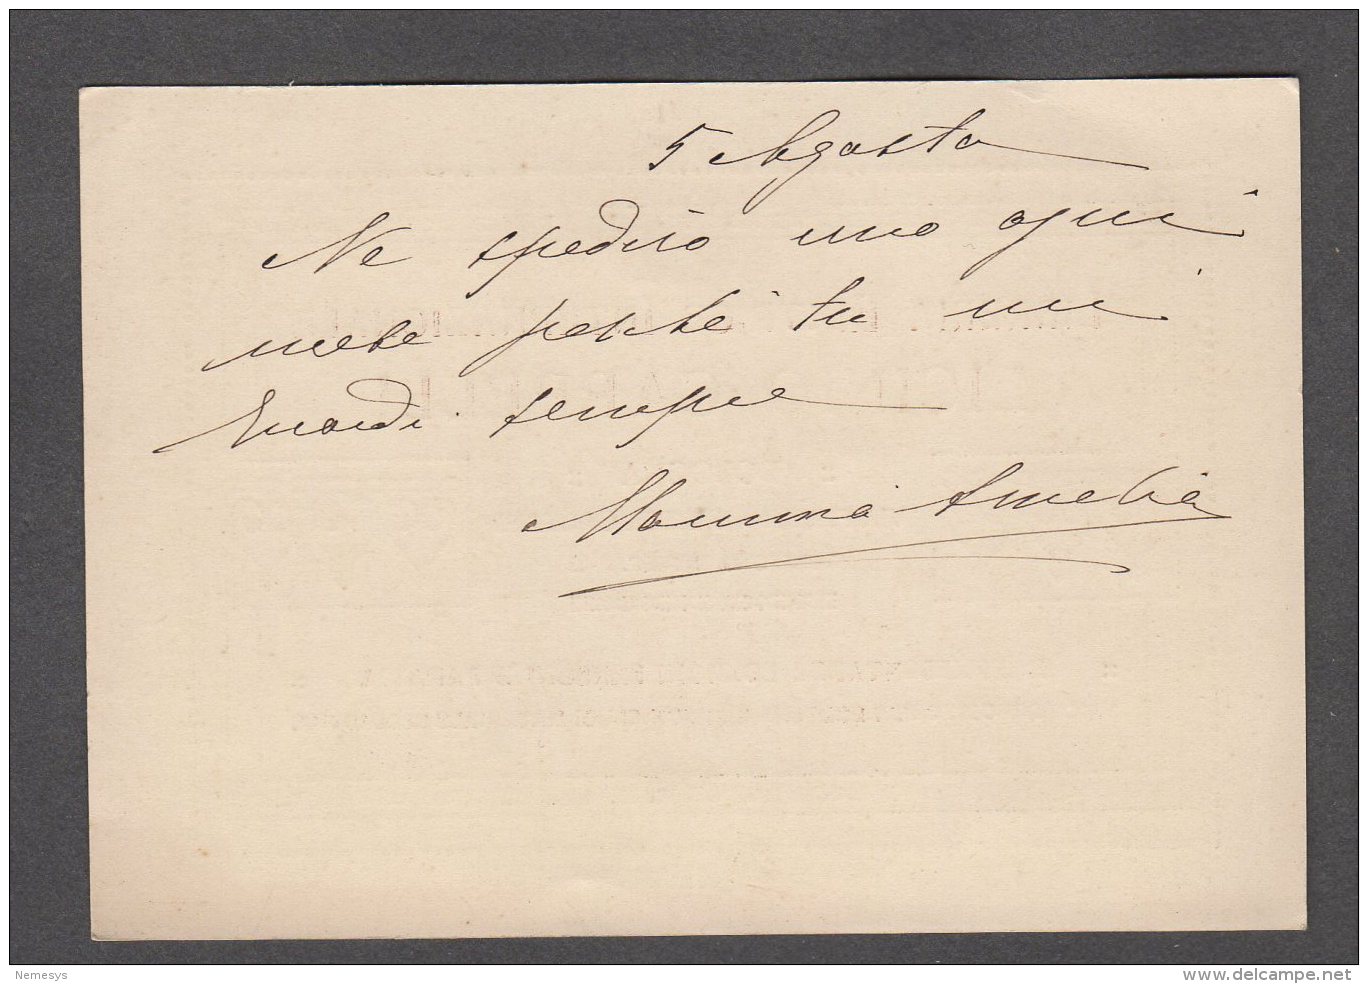 5 Agosto
Ne spedirò uno ogni
mese perchè tu mi
ricordi sempre
Mamma Amelia
Nemesys
www.delcampe.net